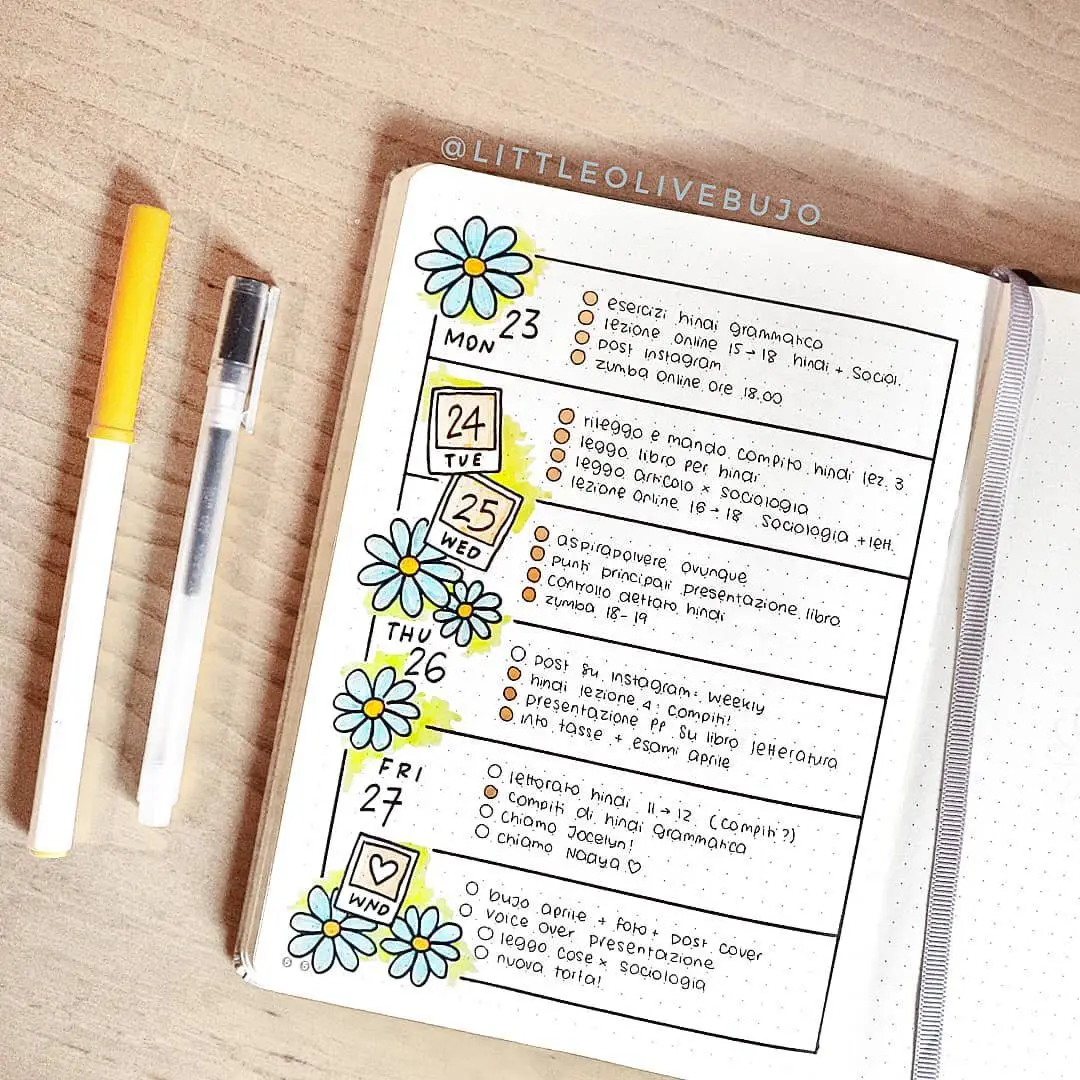 @LITTLEOLIVEBUJO
MON 23
esercizi hindi grammatica
lezione online 15→18 hindi + social.
post instagram
zumba online ore 18.00
24
TUE
rileggo e mando compito hindi lez. 3
leggo libro per hindi
leggo articolo x sociologia
lezione online 16→18 sociologia + lett.
25
WED
aspirapolvere ovunque
punti principali presentazione libro
controllo dettato hindi
zumba 18-19
THU
26
post su instagram: weekly
hindi lezione 4: compiti!
presentazione pp su libro letteratura
info tasse + esami aprile
FRI
27
lettorato hindi 11→12 (compiti?)
compiti di hindi grammatica
chiamo Jocelyn!
chiamo Nadya ♡
WND
bujo aprile + foto + post cover
voice over presentazione
leggo cose x sociologia
nuova torta!